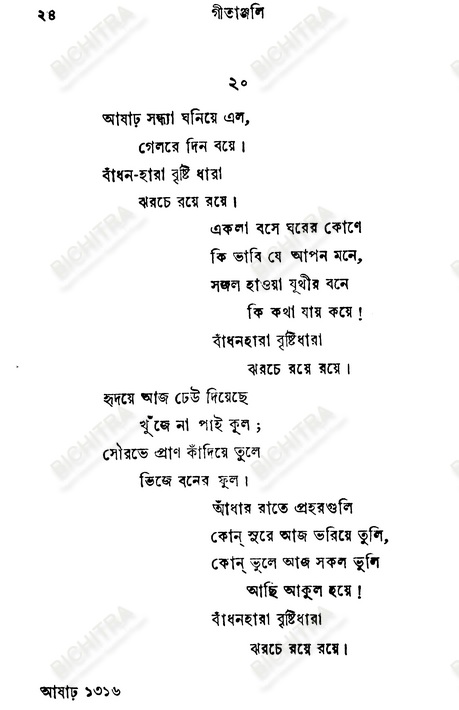 ২৪
গীতাঞ্জলি
২০
আষাঢ় সন্ধ্যা ঘনিয়ে এল,
গেলরে দিন বয়ে।
বাঁধন-হারা বৃষ্টি ধারা
ঝরচে রয়ে রয়ে।
একলা বসে ঘরের কোণে
কি ভাবি যে আপন মনে,
সজল হাওয়া যূথীর বনে
কি কথা যায় কয়ে!
বাঁধনহারা বৃষ্টিধারা
ঝরচে রয়ে রয়ে।
হৃদয়ে আজ ঢেউ দিয়েছে
খুঁজে না পাই কূল;
সৌরভে প্রাণ কাঁদিয়ে তুলে
ভিজে বনের ফুল।
আঁধার রাতে প্রহরগুলি
কোন্ সুরে আজ ভরিয়ে তুলি,
কোন্ ভুলে আজ সকল ভুলি
আছি আকুল হয়ে!
বাঁধনহারা বৃষ্টিধারা
ঝরচে রয়ে রয়ে।
আষাঢ় ১৩১৬
BICHITRA
BICHITRA
BICHITRA
BICHITRA
BICHITRA
BICHITRA
BICHITRA
BICHITRA